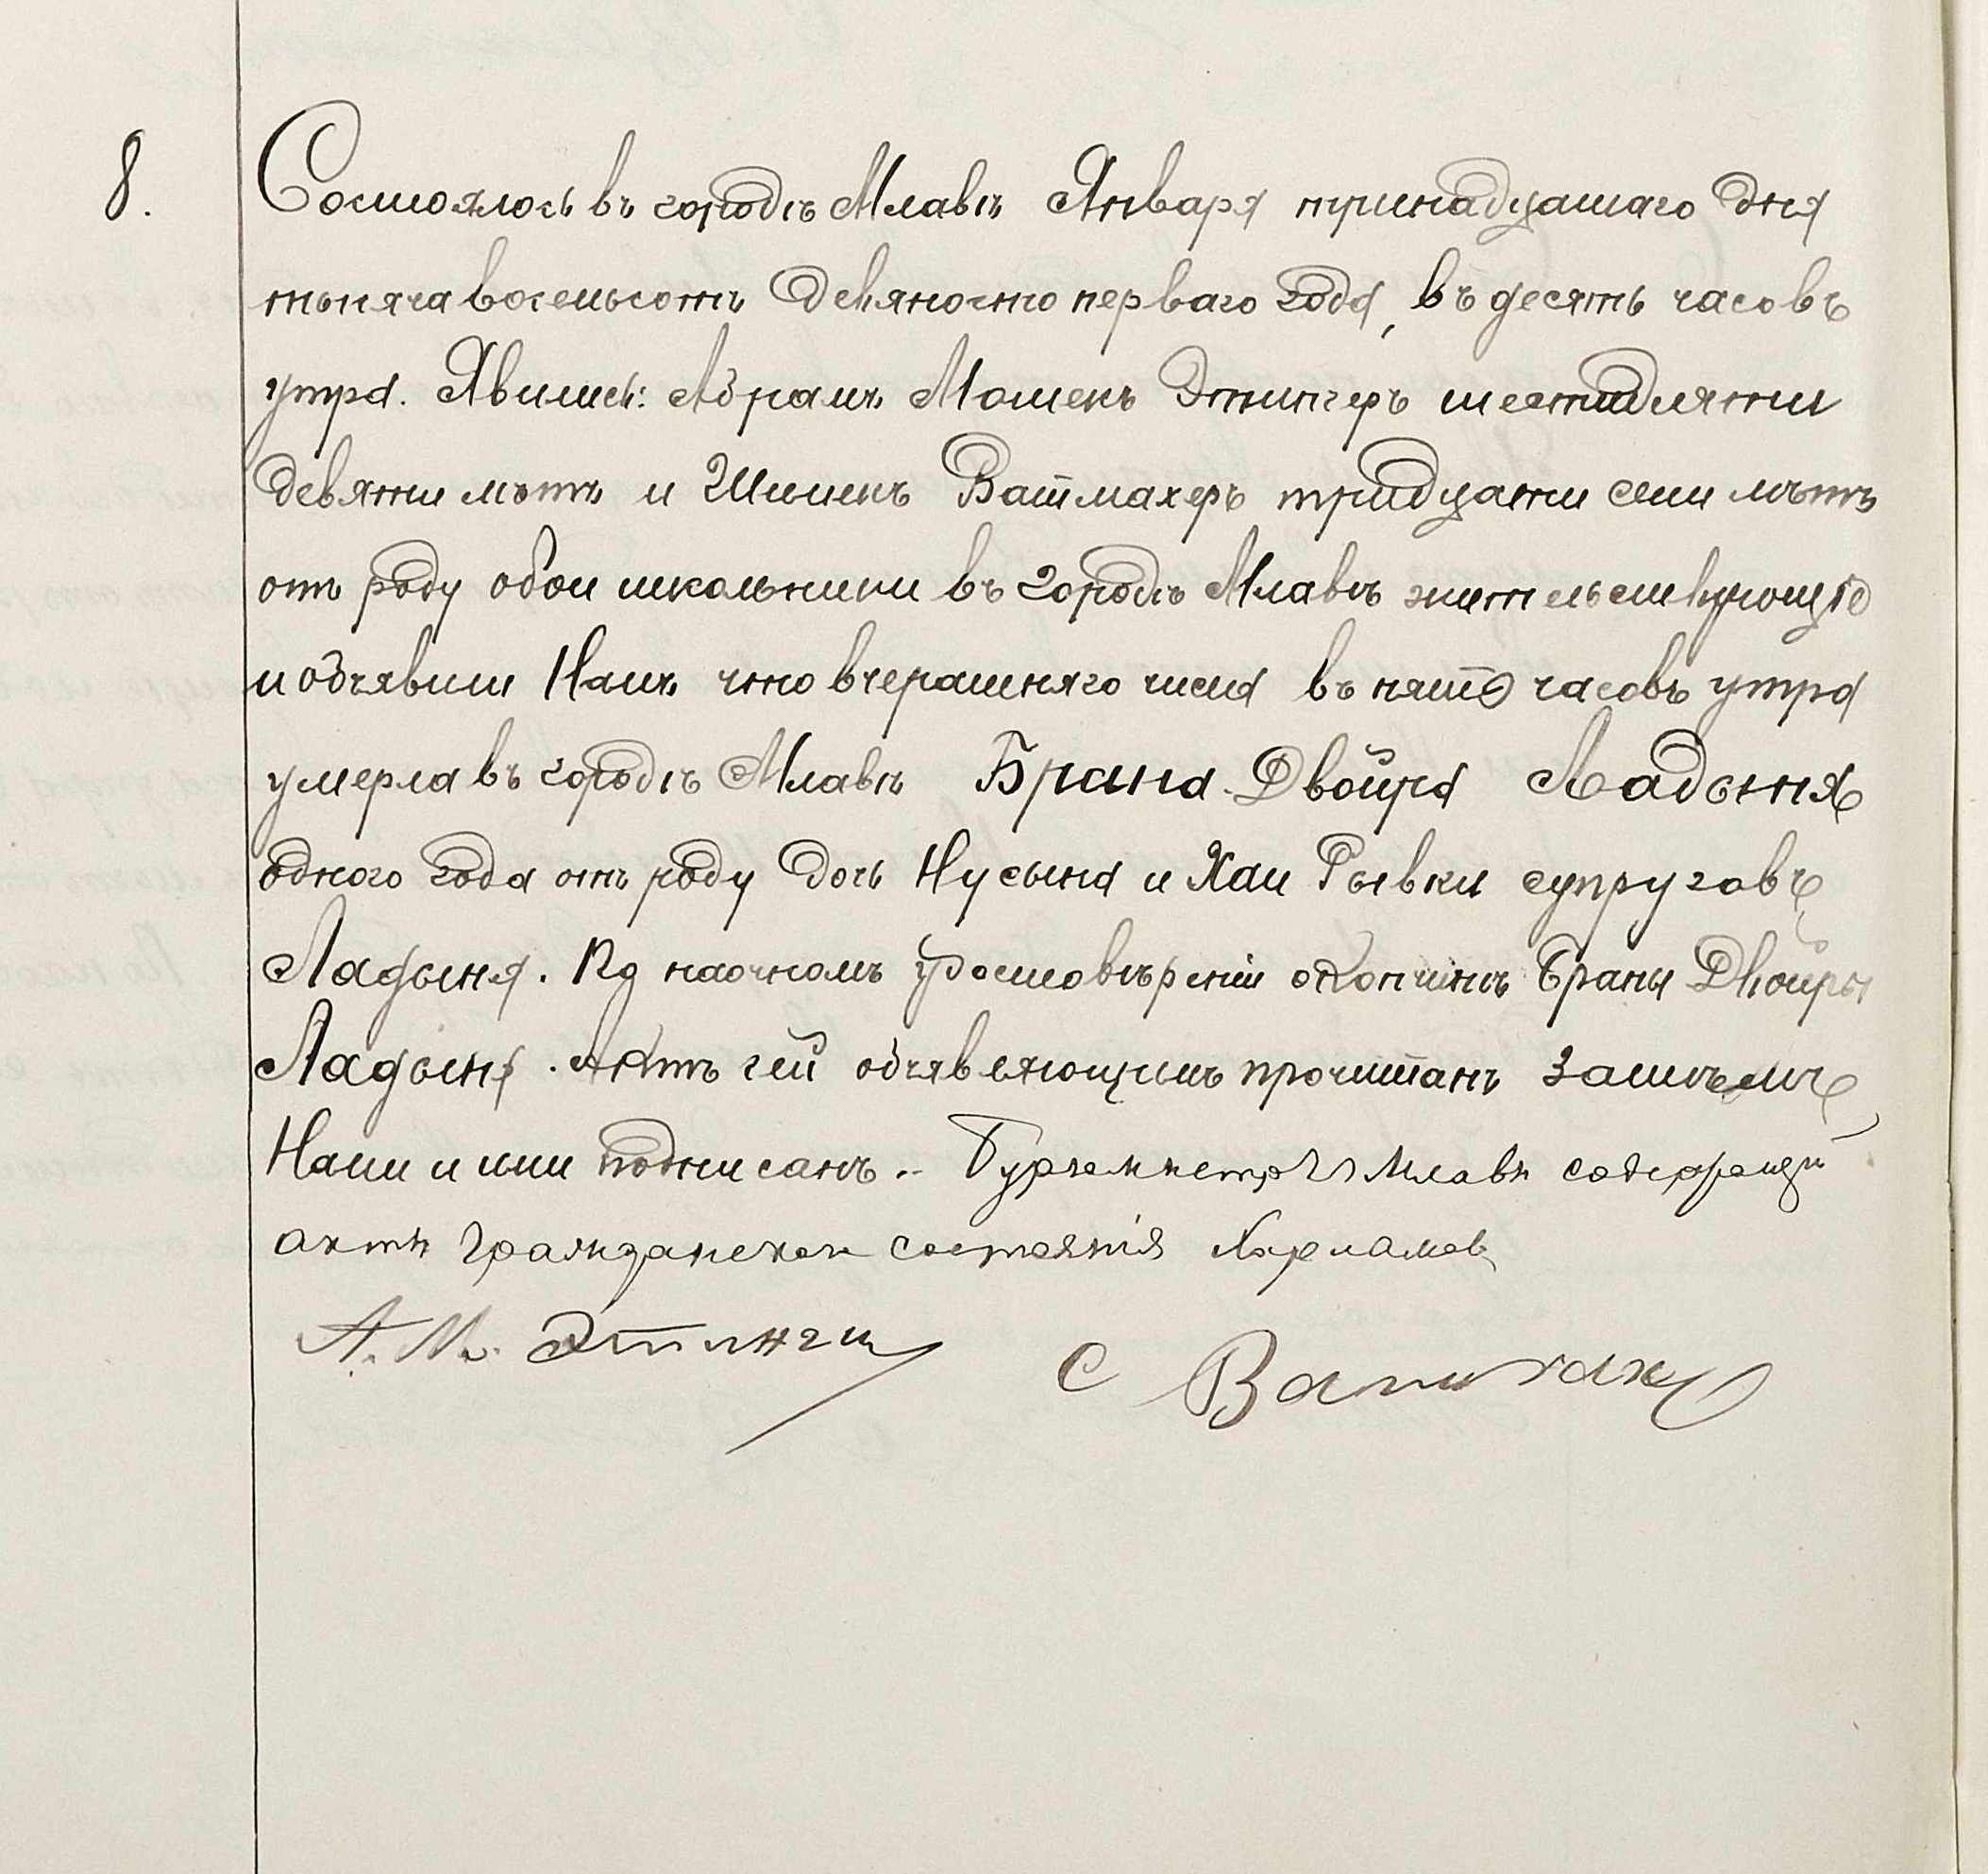 8.
Состоялось въ городѣ Млавѣ Января тринадцатаго дня
тысяча восемьсотъ девяносто перваго года, въ десять часовъ
утра. Явились: Абрамъ Мошекъ Этингеръ шестидесяти
девяти лѣтъ и Шимекъ Ватмахеръ тридцати семи лѣтъ
отъ роду обои школьники въ городѣ Млавѣ жительствующіе
и объявили Намъ что вчерашняго числа въ пять часовъ утра
умерла въ городѣ Млавѣ Брана-Двойра Ладыня
одного года отъ роду дочь Нусына и Хаи Рывки супруговъ
Ладыня. По наочномъ удостовѣреніи о кончинѣ Браны Двойры
Ладыня. Актъ сей объявляющимъ прочитанъ затѣмъ
Нами и ими подписанъ.. Бургомистръ г. Млавы содержащій
акты гражданскаго состоянія
А. М. С